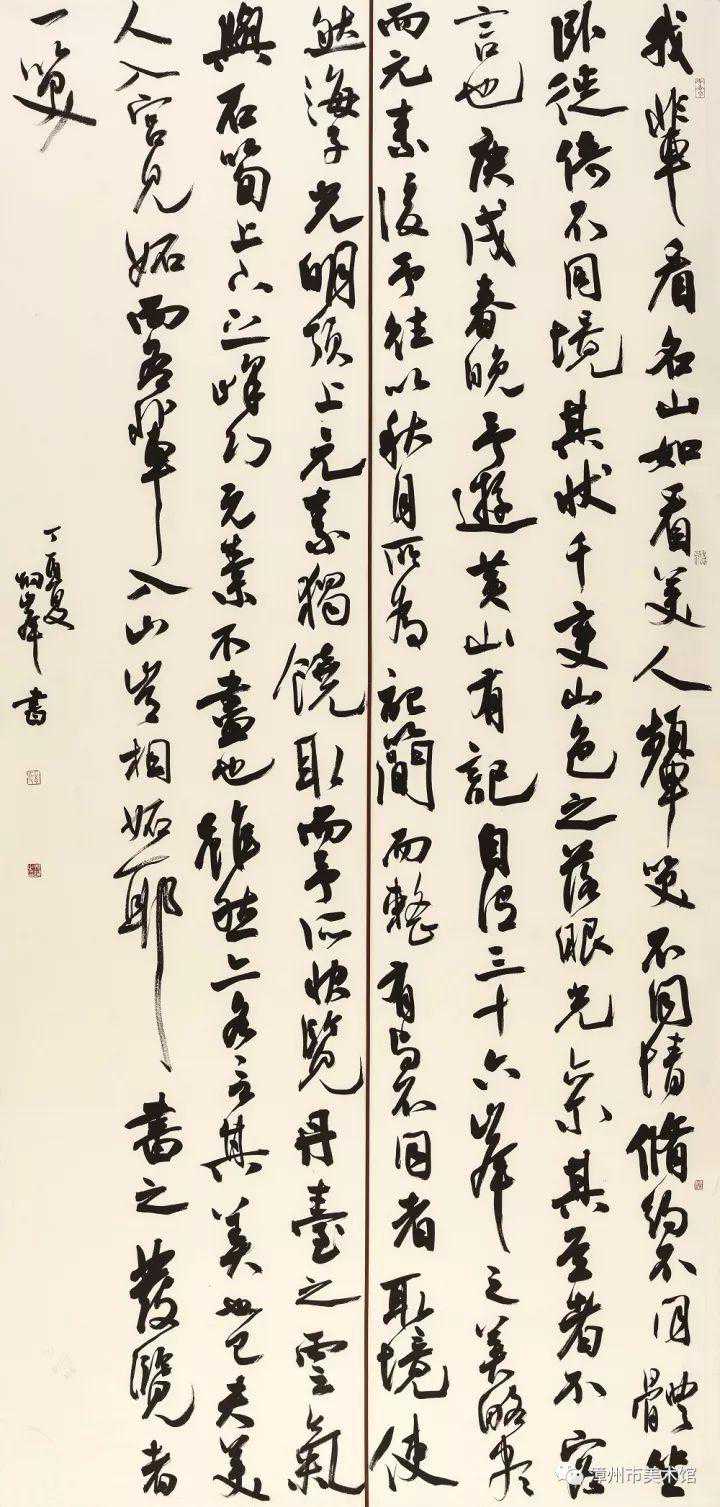 我辈看名山如看美人颦笑不同情脩约不同體坐
卧徙倚不同境其状千变山色之落眼光亦其至者不容
言也庚戌春晚予遊黄山有記自谓三十六峰之美略尽
而元素後予往以秋月所为記簡而整有与不同者取境使
然海子光明顶上元素獨饒取而予所快覽丹臺之雲氣
與石筍上下之峰巧元素不盡也雖然亦各言其美也已夫美
人入宫見妬而吾辈入山岂相妬耶書之發覽者
一笑
丁酉夏
炯峰書
漳州市美术馆